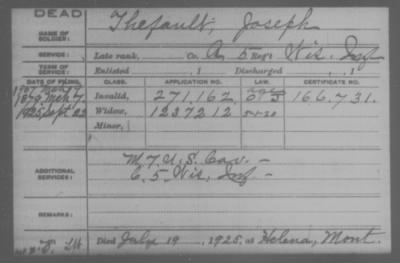 DEAD
NAME OF SOLDIER: Thefault, Joseph
SERVICE: Late rank, Co. A, 5 Reg't Wis. Inf
TERM OF SERVICE: Enlisted , 1 Discharged , 1
DATE OF FILING. CLASS. APPLICATION NO. LAW. CERTIFICATE NO.
1907 Mch 7
1879 Mch 7. Invalid, 271,162 166,731.
1925, Sept 22 Widow, 1237212
Minor,
ADDITIONAL SERVICES:
M, 7, U.S. Cav. -
C. 5. Wis, Inf -
REMARKS:
Died July 19, 1925, at Helena, Mont.